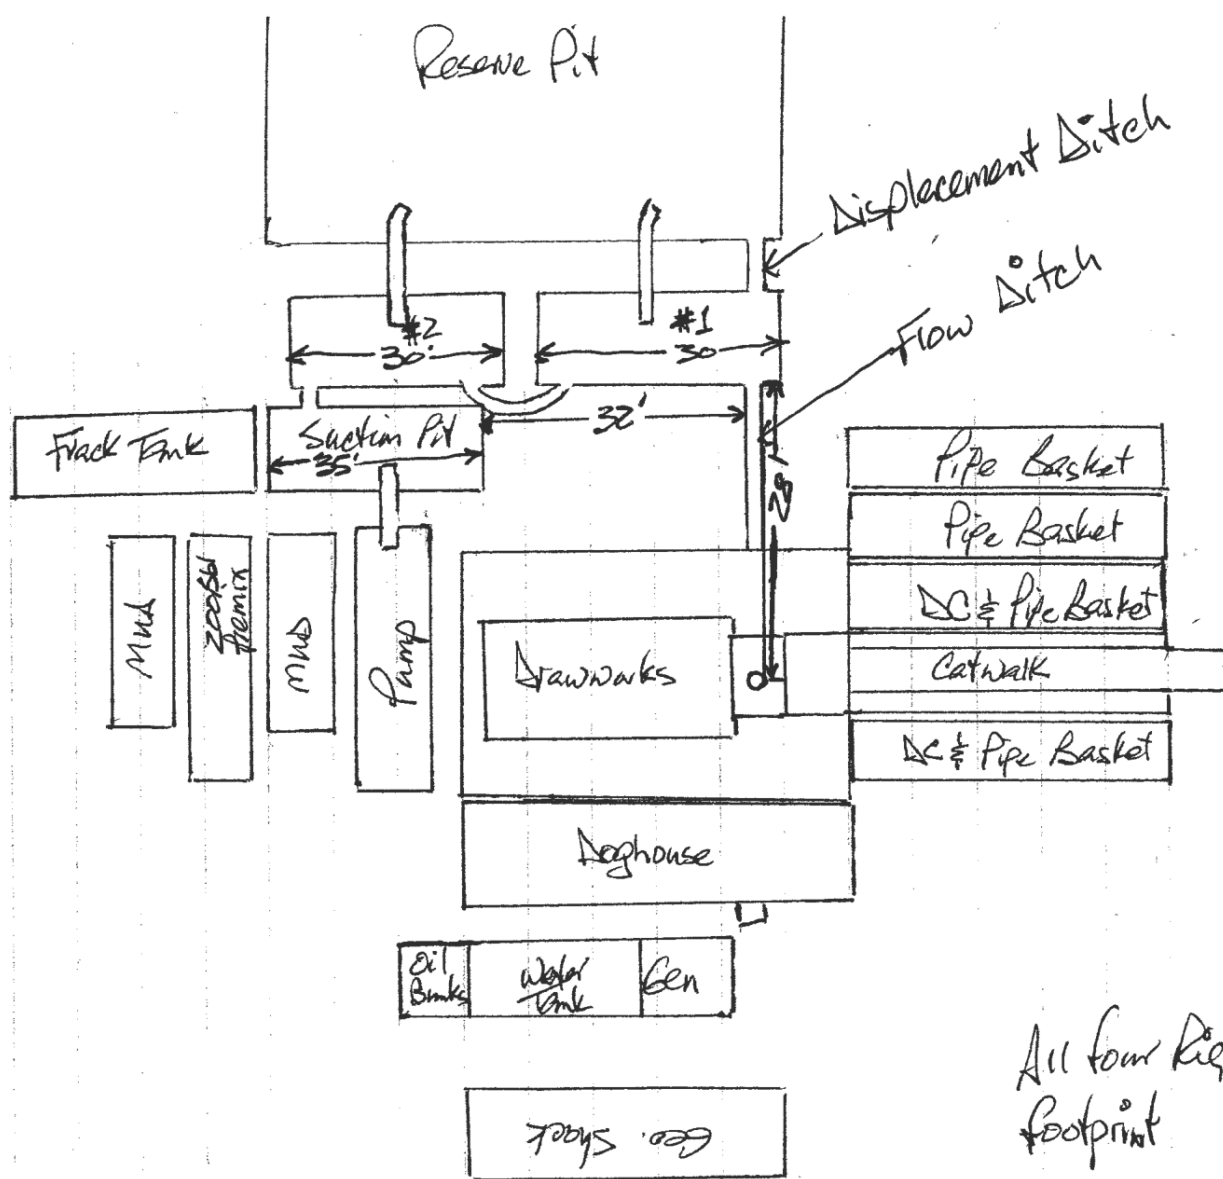 Reserve Pit
Displacement Ditch
Flow Ditch
#2
30'
#1
30
32'
28'
Frack Tank
Suction Pit
35'
Pipe Basket
Pipe Basket
DC & Pipe Basket
Catwalk
DC & Pipe Basket
Mud
200 Bbl
Premix
Mud
Pump
Drawworks
Doghouse
Oil
Bunks
Water
Tank
Gen
Geo. Shack
All four Rig
footprint